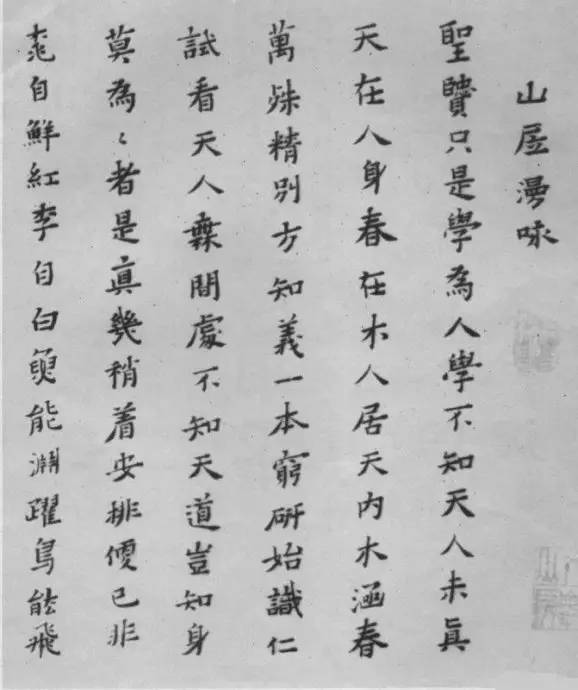 山居漫咏
聖賢只是學為人學不知天人未眞
天在人身春在木人居天內木涵春
萬殊精別方知義一本窮研始識仁
試看天人無間處不知天道豈知身
莫為々者是眞幾稍着安排便已非
桃自鮮紅李自白魚能淵躍鳥能飛